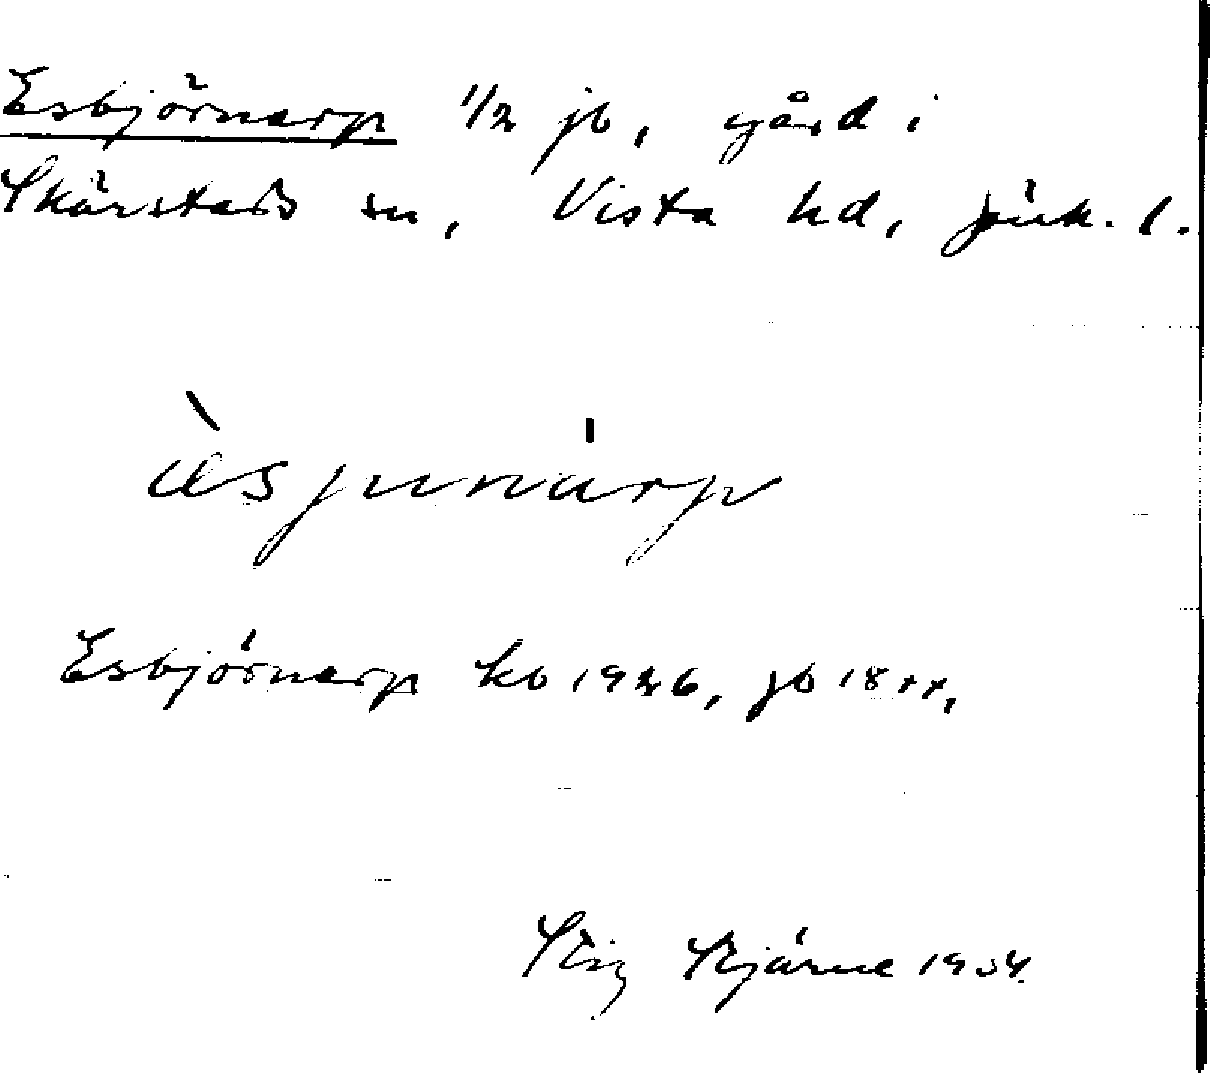 Esbjörnarp 1/2 jb, gård i
Skärstads sn, Vista hd, Jönk. l.
æ̀spunárp
Esbjörnarp kb 1926, jb 18xx,
Stig Stjärne 1934.